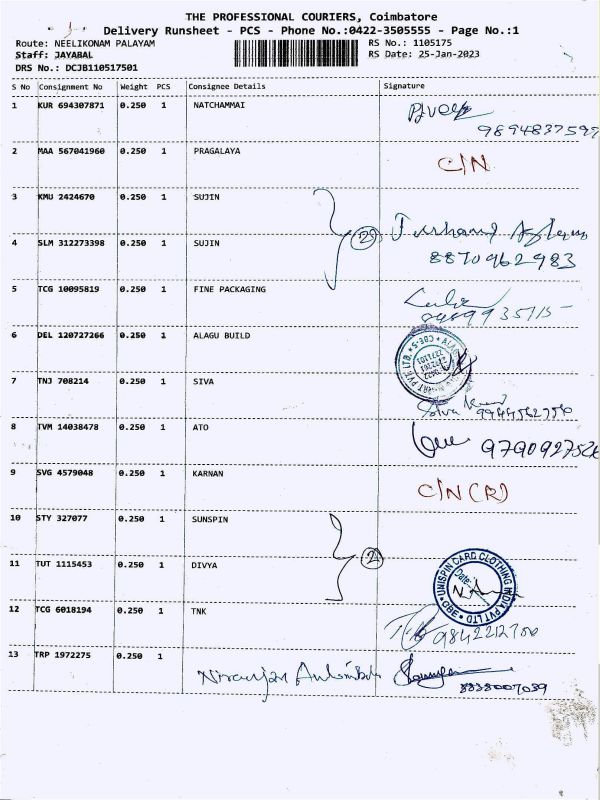 THE PROFESSIONAL COURIERS, Coimbatore
Delivery Runsheet - PCS - Phone No.:0422-3505555 - Page No.:1
Route: NEELIKONAM PALAYAM RS No.: 1105175
Staff: JAYABAL RS Date: 25-Jan-2023
DRS No.: DCJB110517501
S No Consignment No Weight PCS Consignee Details Signature
1 KUR 694307871 0.250 1 NATCHAMMAI
9894837597
2 MAA 567041960 0.250 1 PRAGALAYA C/N
3 KMU 2424670 0.250 1 SUJIN
2
4 SLM 312273398 0.250 1 SUJIN
8870962983
5 TCG 10095819 0.250 1 FINE PACKAGING
6 DEL 120727266 0.250 1 ALAGU BUILD
7 TNJ 708214 0.250 1 SIVA
9944562756
8 TVM 14038478 0.250 1 ATO
9 SVG 4579048 0.250 1 KARNAN C/N (R)
10 STY 327077 0.250 1 SUNSPIN
2
11 TUT 1115453 0.250 1 DIVYA
UNISPIN CARD CLOTHING INDIA PVT LTD
Date
12 TCG 6018194 0.250 1 TNK
9842212700
13 TRP 1972275 0.250 1
8838007039